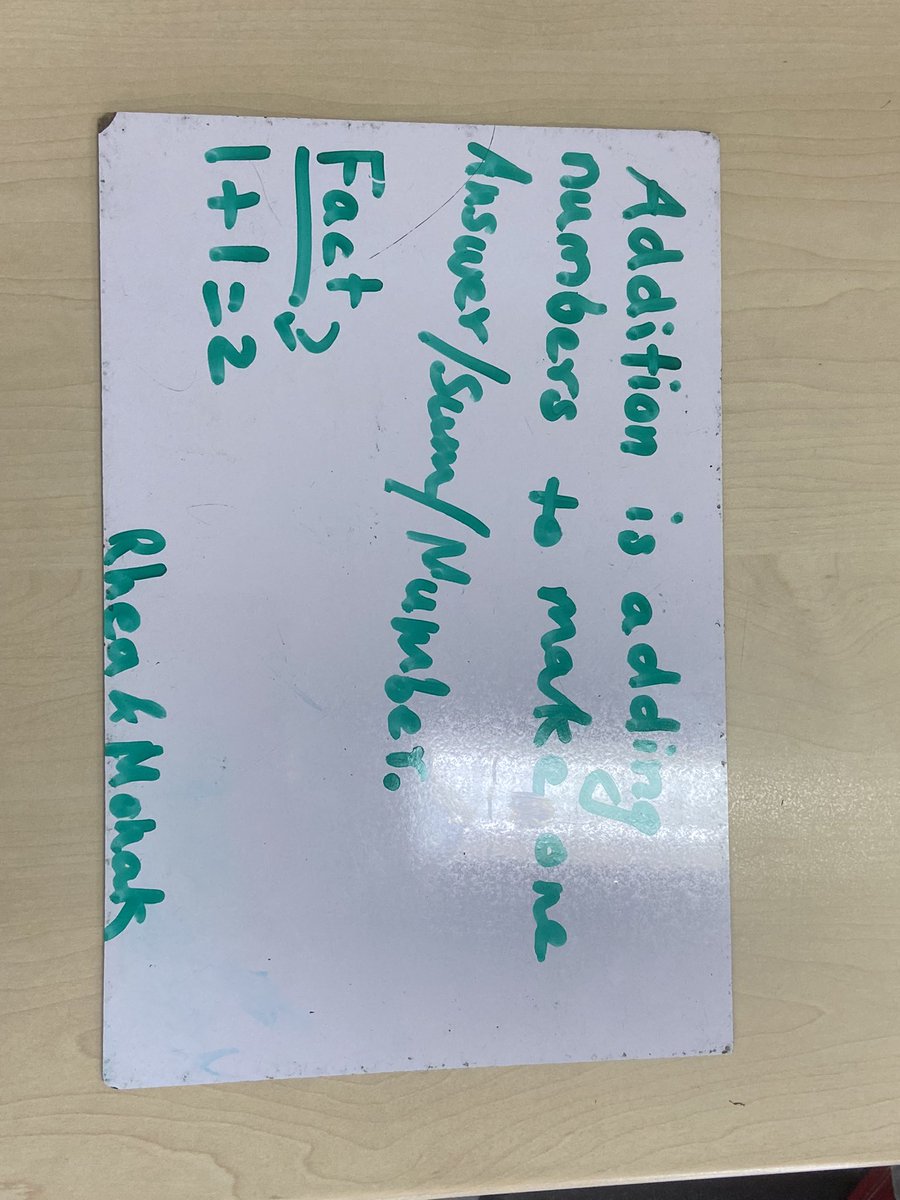 Addition is adding
numbers to make one
Answer/Sum/Number.
Fact
1+1=2
Rhea & Mohak